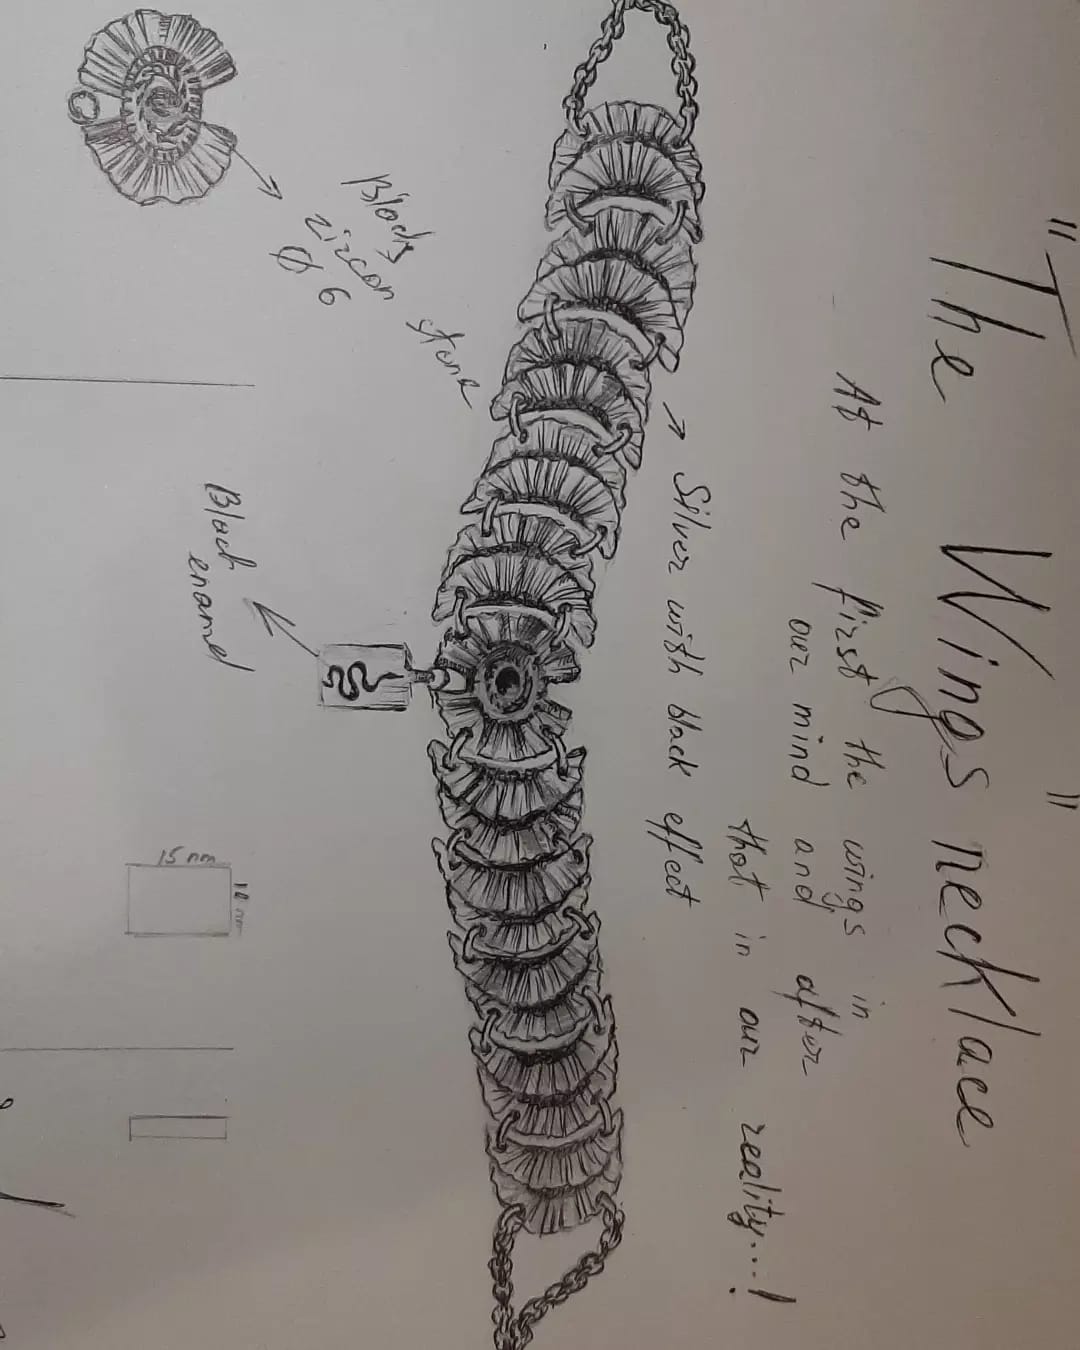 "The Wings necklace"
At the first the wings in
our mind and after
that in our reality...!
→ Silver with black effect
Black
zircon stone
Ø 6
Black
enamel
15 mm